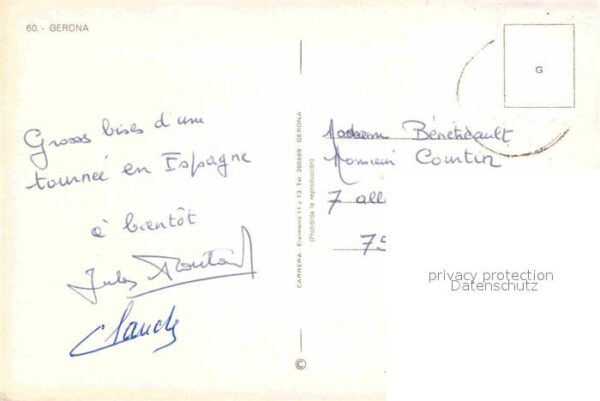 60. - GERONA
Grosses bises d'une
tournée en Espagne
à bientôt
Jules
Claude
CARRERA. Eiximenis 11 y 13. Tel. 205669 GERONA
(Prohibida la reproducción)
G
Madame Bénéticault
Monsieur Courtin
7 all
75
privacy protection
Datenschutz
©